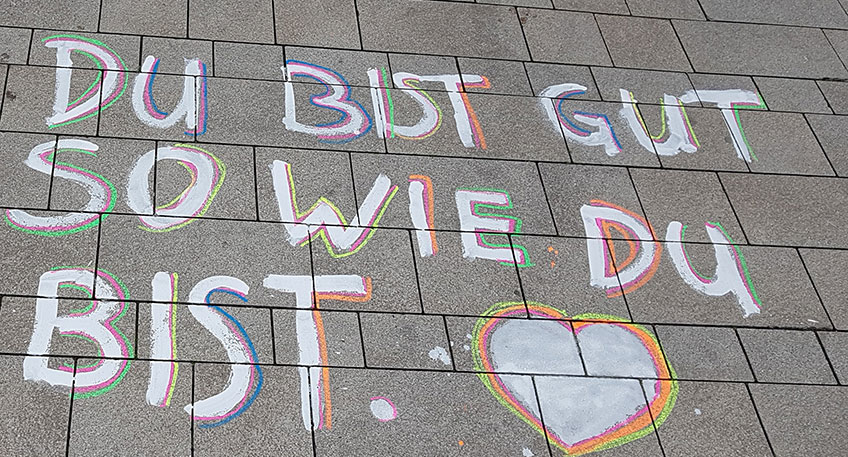 DU BIST GUT
SO WIE DU
BIST.